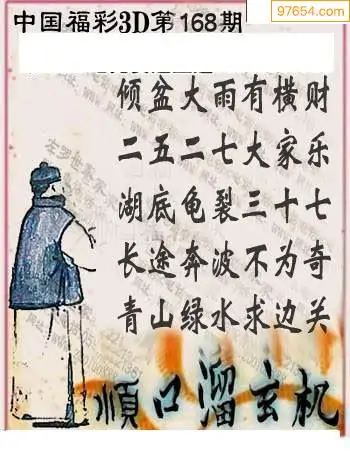 中国福彩3D第168期
97654.com
倾盆大雨有横财
二五二七大家乐
湖底龟裂三十七
长途奔波不为奇
青山绿水求边关
順口溜玄机